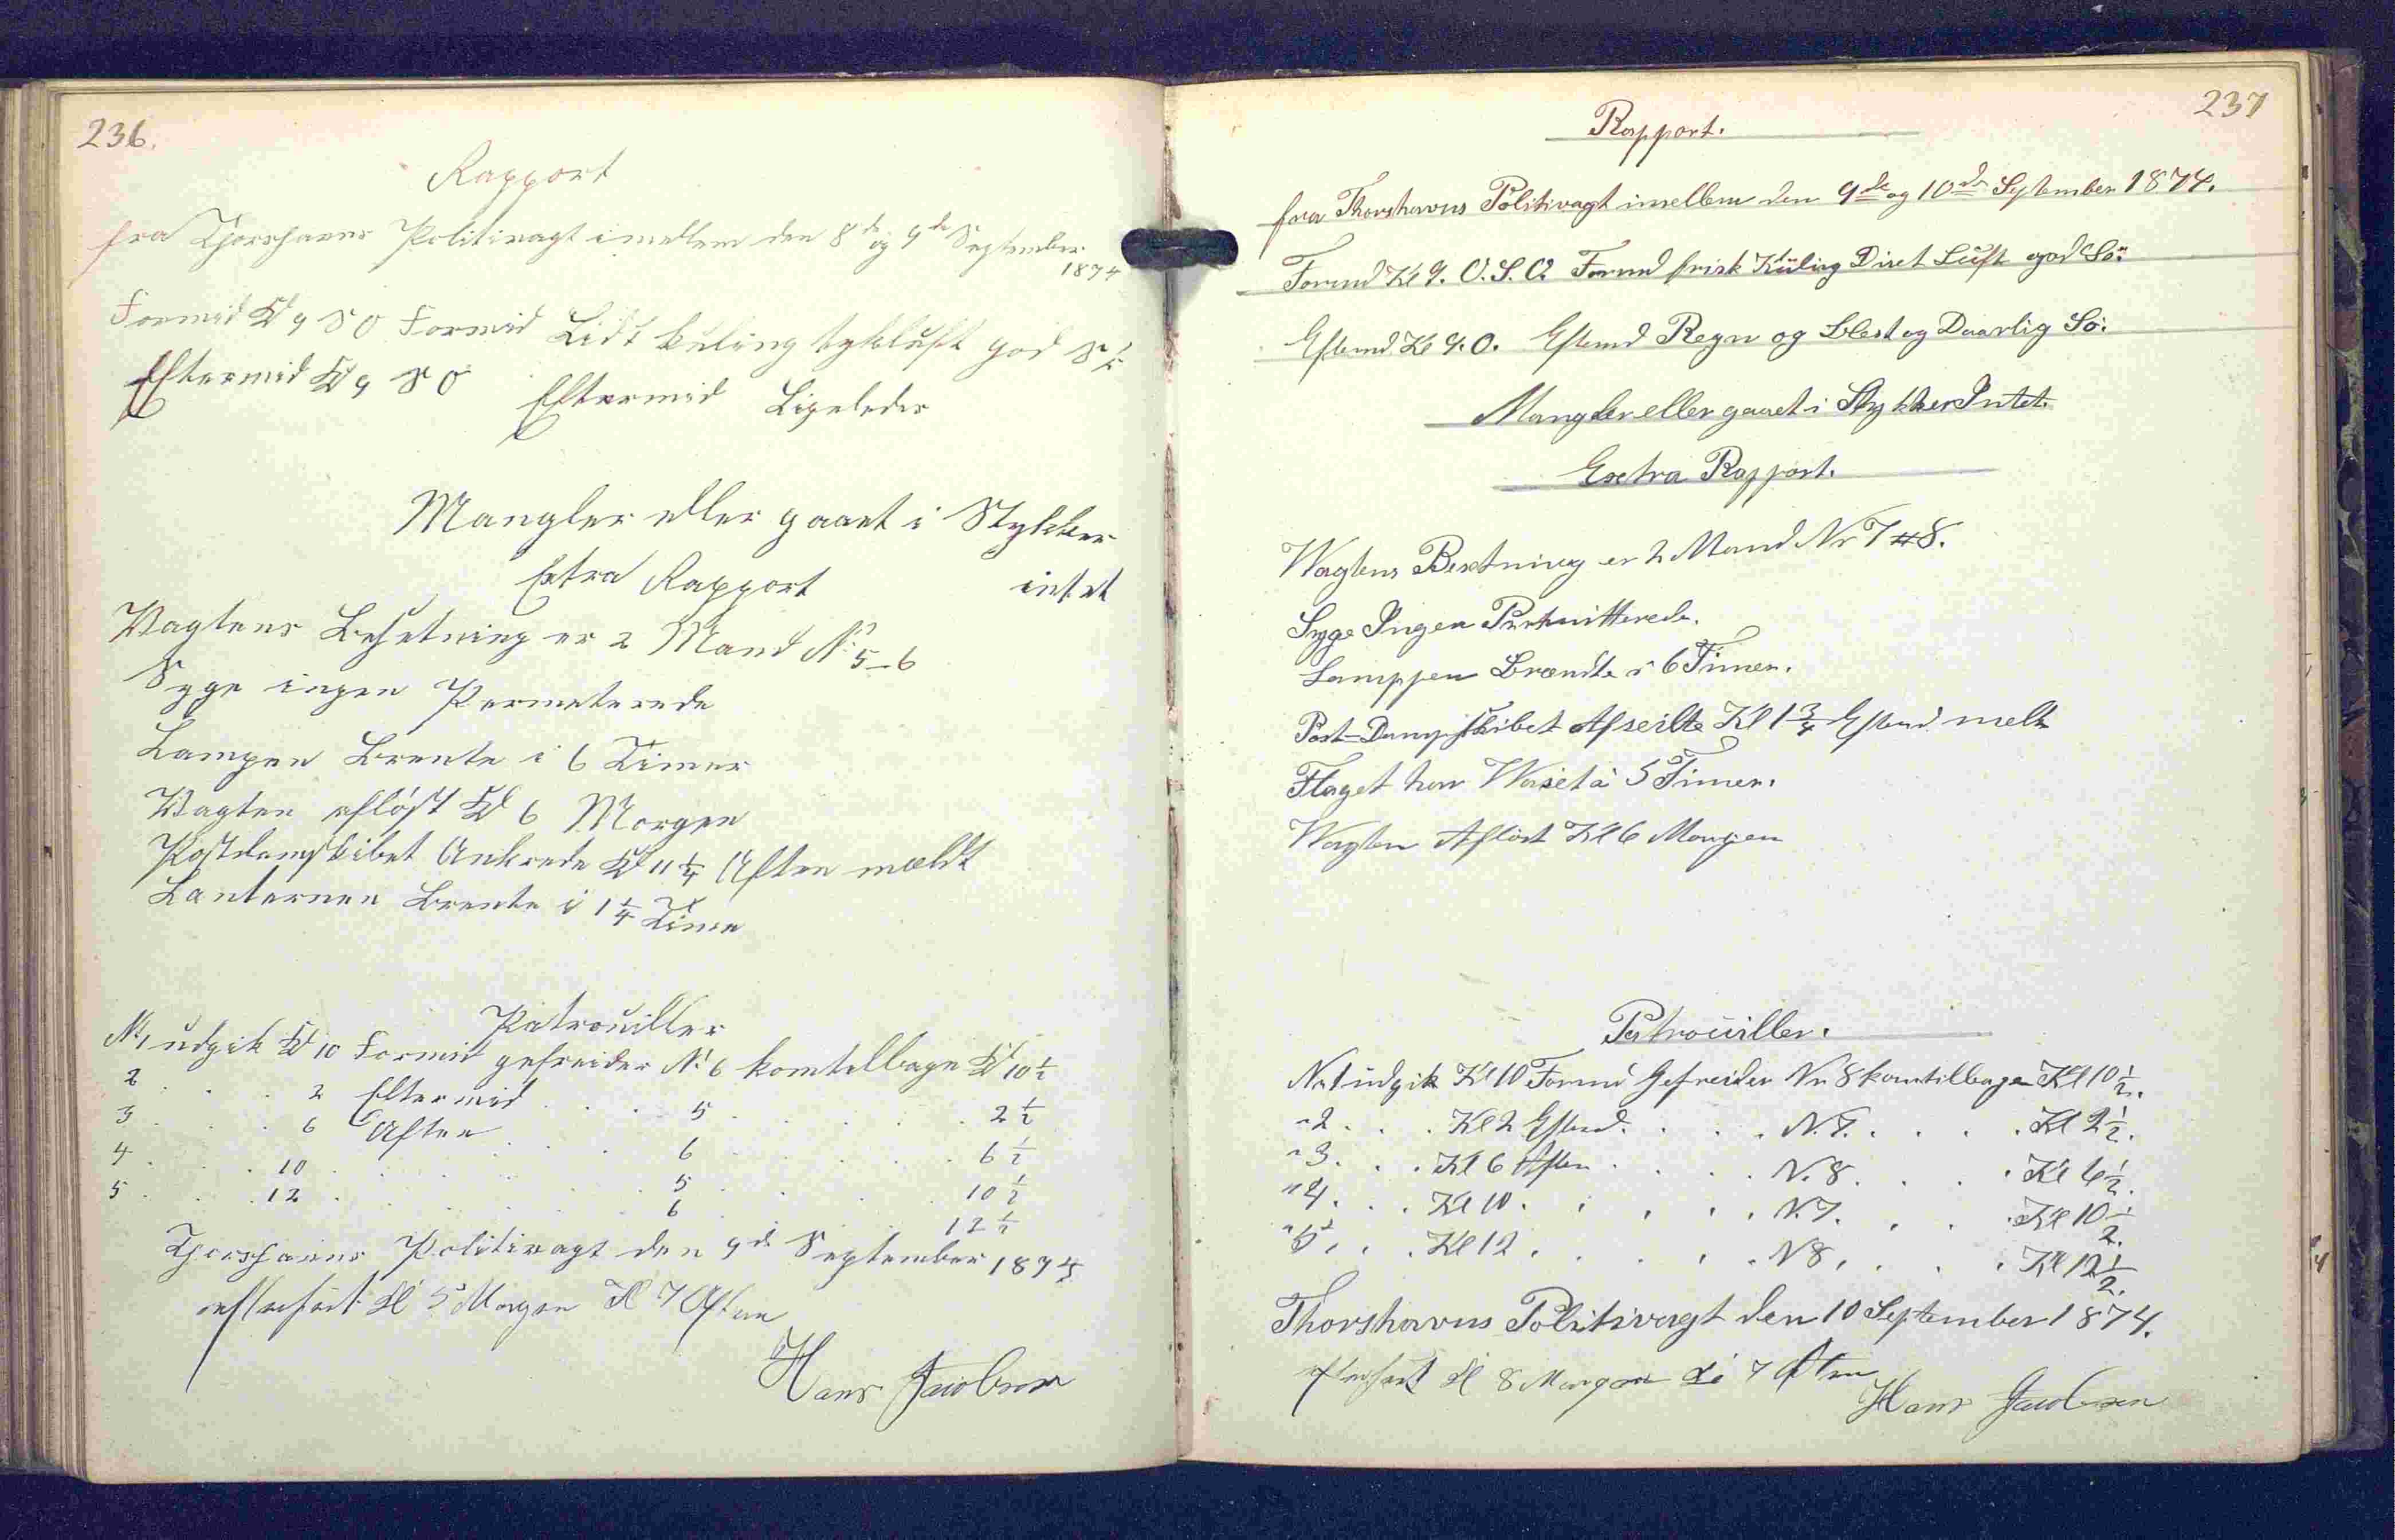 236.
Rapport
fra Thorshavns Politivagt imellem den 8de og 9de September
1874
Formid Kl 9 S O Formid Lidt kuling tykluft god Sö
Eftermid Kl 9 S O Eftermid Ligeledes
Mangler eller gaaet i Stykker
intet
Extra Rapport
Vagtens Besetning er 2 Mand No 5-6
Syge ingen Permeterede
Lampen Brente i 6 Timer
Vagten afløst Kl 6 Morgen
Postdampskibet Ankrede Kl 11 1/4 Aften meldt
Lanternen Brente i 1 1/4 Time
Patrouiller
No 1 udgik Kl 10 Formid gefreider No 6 kom tilbage Kl 10 1/2
2 . . . 2 Eftermid . . . 5 . . . 2 1/2
3 . . . 6 Aften . . . 6 . . . 6 1/2
4 . . . 10 . . . 5 . . . 10 1/2
5 . . . 12 . . . 6 . . . 12 1/2
Thorshavns Politivagt den 9de September 1874
efterseet Kl 5 Morgen Kl 7 Aften
Hans Jacobsen
237
Rapport.
fra Thorshavns Politivagt imellem den 9de og 10de September 1874.
Formd Kl 9. O.S.O. Formd frisk Küling Diset Luft god Sö.
Eftemd. Kl 9. O. Eftemd Regn og Blest og Daarlig Sö.
Mangler eller gaaet i Stykker Intet.
Extra Rapport.
Wagtens Besetning er 2 Mand Nr 7 # 8.
Syge Ingen Permitterede.
Lamppen Brændte i 6 Timer.
Post-Dampskibet Afseilte Kl 1 3/4 Eftemd. melt
Flaget har Waiet i 5 Timer.
Wagten Afløst Kl 6 Morgen
Patrouiller.
Nr. 1 udgik Kl 10 Formd Gefreider Nr. 8 kom tilbagen Kl 10 1/2.
" 2. . . . Kl 2 Eftemd. . . . N. 7. . . . Kl 2 1/2.
" 3. . . . Kl 6 Aften . . . N. 8. . . . Kl 6 1/2.
" 4. . . . Kl 10. . . . N. 7. . . . Kl 10 1/2.
" 5. . . . Kl 12. . . . N 8. . . . Kl 12 1/2.
Thorshavns Politivagt den 10 September 1874.
efterseet Kl 8 Morgen Kl 7 Aften
Hans Jacobsen